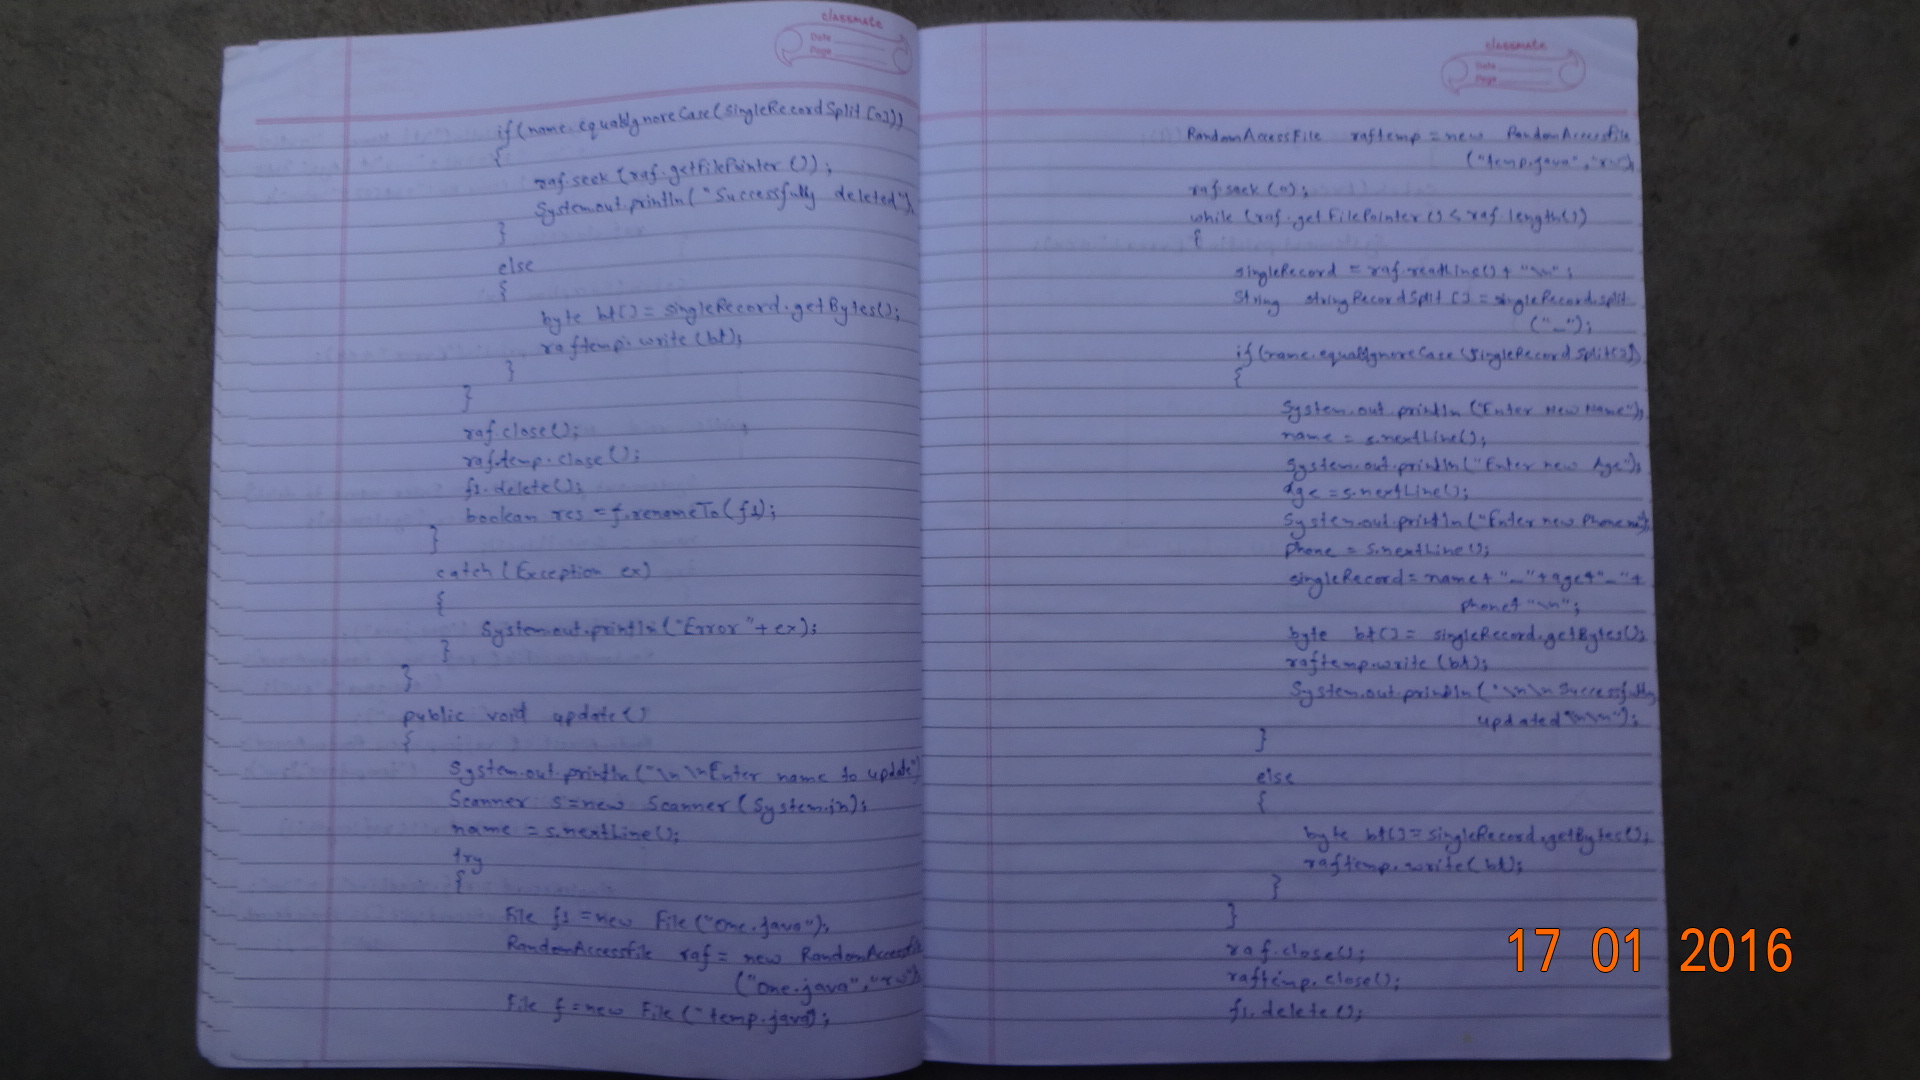 classmate
Date
Page
if(name.equalsIgnoreCase(singleRecordSplit[0]))
{
raf.seek(raf.getFilePointer());
System.out.println("Successfully deleted");
}
else
{
byte bt[] = singleRecord.getBytes();
raftemp.write(bt);
}
}
raf.close();
raftemp.close();
f1.delete();
boolean res = f.renameTo(f1);
}
catch(Exception ex)
{
System.out.println("Error"+ex);
}
}
public void update()
{
System.out.println("\n\nEnter name to update")
Scanner s=new Scanner(System.in);
name = s.nextLine();
try
{
File f1 =new File("One.java");
RandomAccessFile raf = new RandomAccessFile
("One.java","rw");
File f=new File("temp.java");
classmate
Date
Page
RandomAccessFile raftemp = new RandomAccessFile
("temp.java","rw");
raf.seek(0);
while(raf.getFilePointer()<raf.length())
{
singleRecord = raf.readLine()+"\n";
String stringRecordSplit[]=singleRecord.split
("_");
if(name.equalsIgnoreCase(singleRecordSplit[0]))
{
System.out.println("Enter New Name");
name = s.nextLine();
System.out.println("Enter new Age");
age =s.nextLine();
System.out.println("Enter new Phone no");
phone = s.nextLine();
singleRecord= name+"_"+age+"_"+
phone+"\n";
byte bt[]= singleRecord.getBytes();
raftemp.write(bt);
System.out.println("\n\n Successfully
updated\n\n");
}
else
{
byte bt[]=singleRecord.getBytes();
raftemp.write(bt);
}
}
raf.close();
raftemp.close();
f1.delete();
17 01 2016